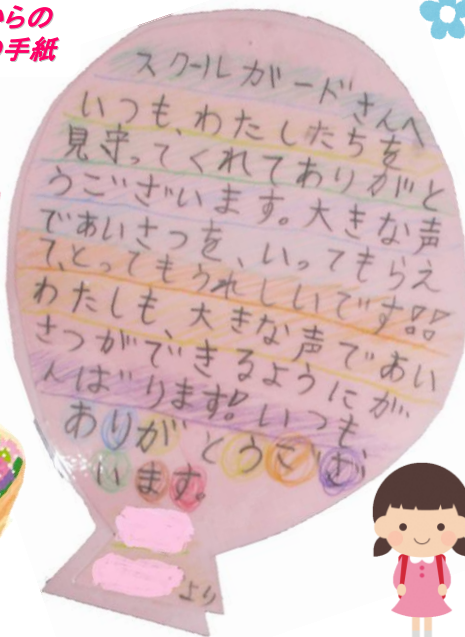 からの
手紙
スクールガードさんへ
いつも、わたしたちを
見守ってくれてありがと
うございます。大きな声
であいさつを、いってもらえ
て、とってもうれしいです!!
わたしも、大きな声であい
さつができるようにが
んばります!いつも
ありがとうござ
います。
より